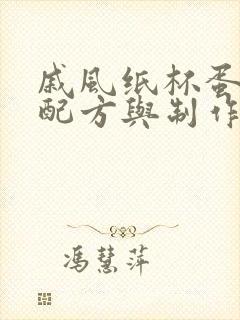 戚風纸杯蛋
配方與制作
馮慧萍